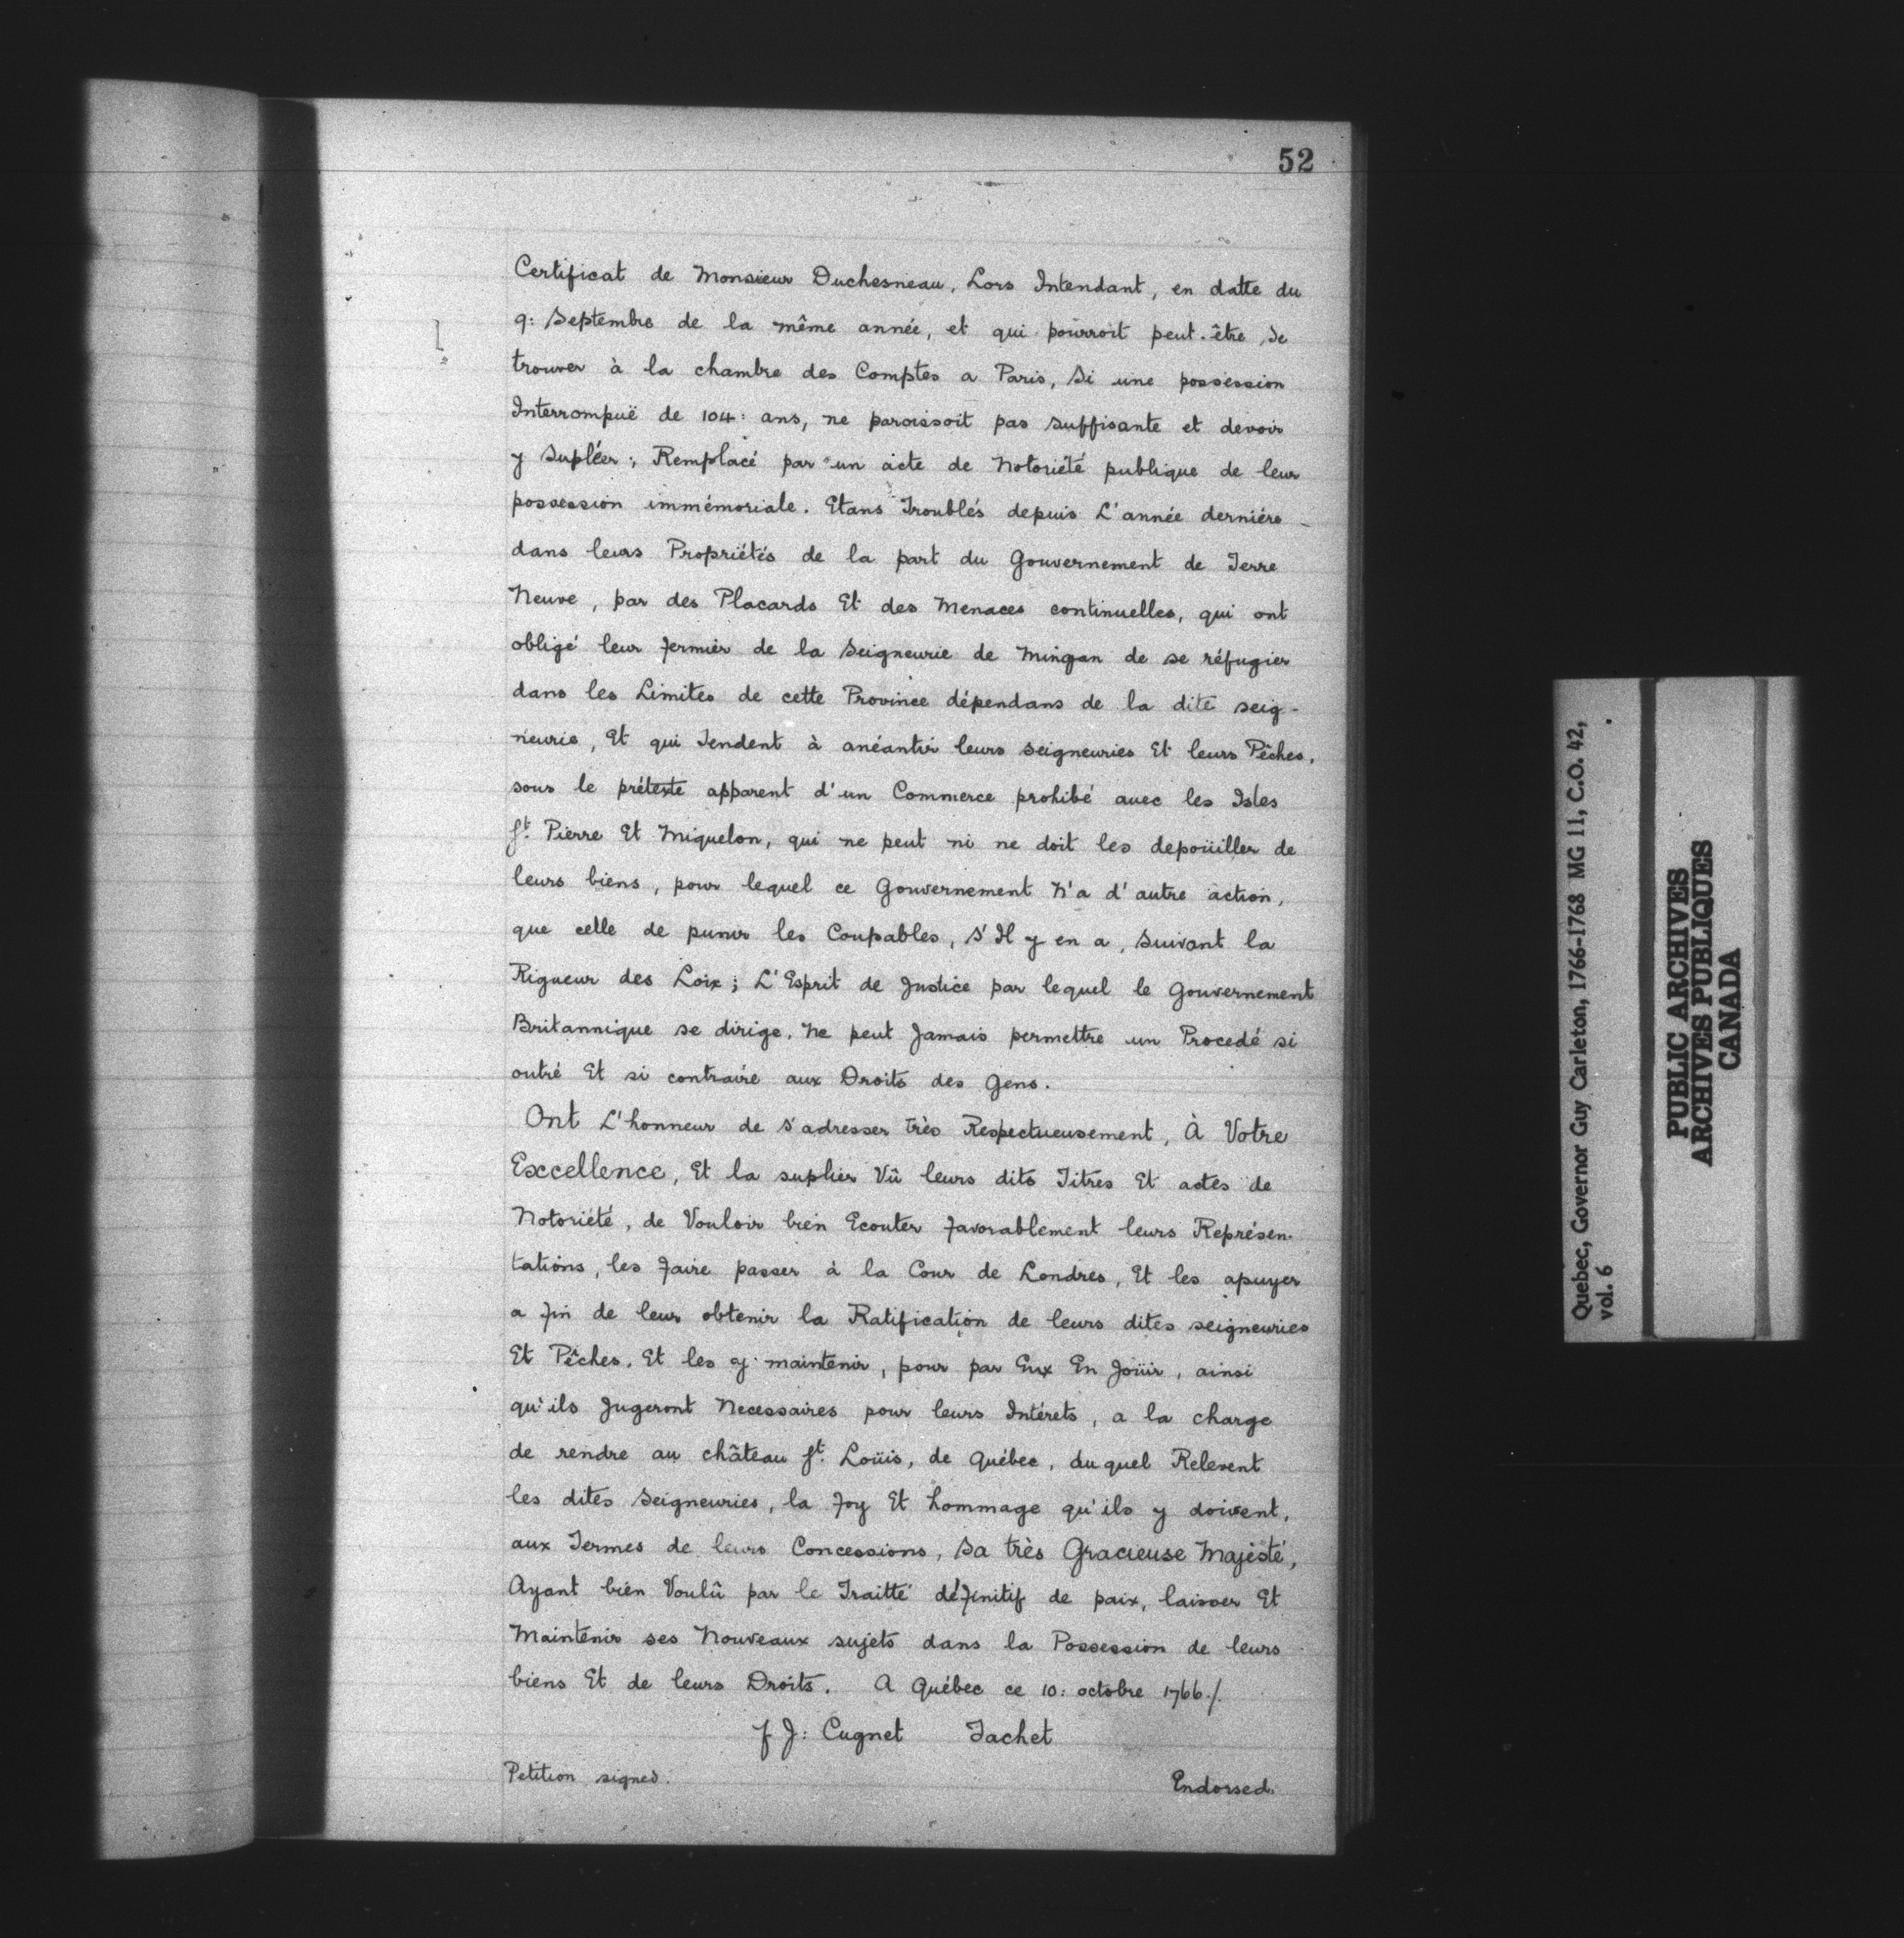 52
Certificat de Monsieur Duchesneau, Lors Intendant, en datte du
9: Septembre de la même année, et qui pourroit peut-être se
trouver à la chambre des Comptes a Paris, Si une possession
Interrompuë de 104: ans, ne paroissoit pas suffisante et devoir
y Supléer; Remplacé par un acte de Notoriété publique de leur
possession immémoriale. Etans Troublés depuis L'année derniére
dans leurs Propriétés de la part du Gouvernement de Terre
Neuve, par des Placards Et des Menaces continuelles, qui ont
obligé leur fermier de la Seigneurie de Mingan de se réfugier
dans les Limites de cette Province dépendans de la dite seig-
neurie, Et qui Tendent à anéantir leurs seigneuries Et leurs Pêches,
sous le prétexte apparent d'un Commerce prohibé avec les Isles
St. Pierre Et Miquelon, qui ne peut ni ne doit les depoüiller de
leurs biens, pour lequel ce Gouvernement N'a d'autre action,
que celle de punir les Coupables, S'Il y en a, Suivant la
Rigueur des Loix; L'Esprit de Justice par lequel le Gouvernement
Britannique se dirige, Ne peut Jamais permettre un Procedé si
outré Et si contraire aux Droits des Gens.
Ont L'honneur de s'adresser très Respectueusement, À Votre
Excellence, Et la suplier Vû leurs dits Titres Et actes de
Notoriété, de Vouloir bien Ecouter favorablement leurs Représen-
tations, les faire passer à la Cour de Londres, Et les apuyer
a fin de leur obtenir la Ratification de leurs dites seigneuries
Et Pêches, Et les y maintenir, pour par Eux En Joüir, ainsi
qu'ils Jugeront Necessaires pour leurs Intérets, a la charge
de rendre au château St. Loüis, de Québec, duquel Relevent
les dites Seigneuries, la foy Et hommage qu'ils y doivent,
aux Termes de leurs Concessions, Sa très Gracieuse Majesté,
Ayant bien Voulû par le Traitté définitif de paix, laisser Et
Maintenir ses Nouveaux sujets dans la Possession de leurs
biens Et de leurs Droits. A Québec ce 10: octobre 1766./.
f J: Cugnet Tachet
Petition signed.
Endorsed.
Quebec, Governor Guy Carleton, 1766-1768 MG 11, C.O. 42,
vol. 6
PUBLIC ARCHIVES
ARCHIVES PUBLIQUES
CANADA